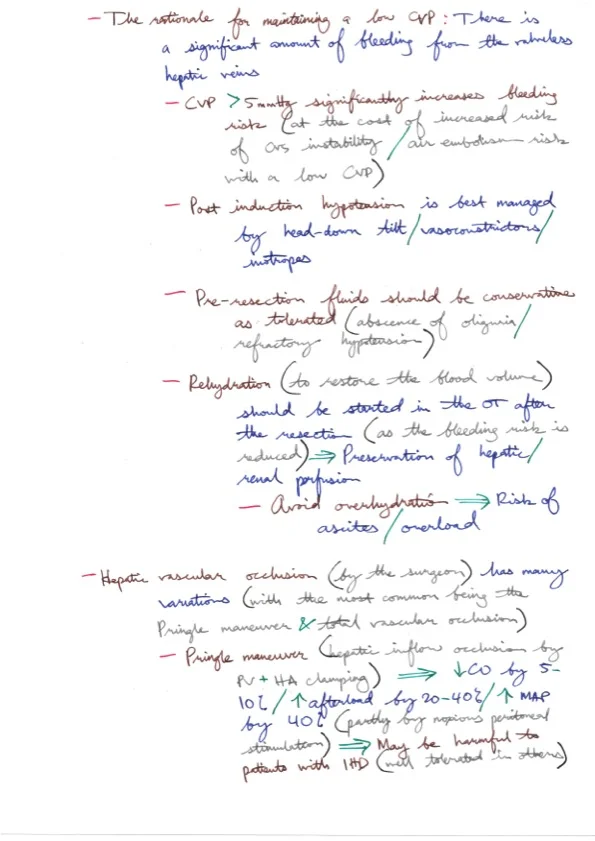 - The rationale for maintaining a low CVP: There is
a significant amount of bleeding from the valveless
hepatic veins
- CVP > 5mmHg significantly increases bleeding
risk (at the cost of increased risk
of CVS instability / air embolism risk
with a low CVP)
- Post induction hypotension is best managed
by head-down tilt/vasoconstrictors/
inotropes
- Pre-resection fluids should be conservative
as tolerated (abscence of oliguria/
refractory hypotension)
- Rehydration (to restore the blood volume)
should be started in the OT after
the resection (as the bleeding risk is
reduced) ⇒ Preservation of hepatic/
renal perfusion
- Avoid overhydration ⇒ Risk of
ascites/overload
- Hepatic vascular occlusion (by the surgeon) has many
variations (with the most common being the
Pringle maneuver & total vascular occlusion)
- Pringle maneuver (hepatic inflow occlusion by
PV + HA clamping) ⇒ ↓CO by 5-
10% / ↑afterload by 20-40% / ↑ MAP
by 40% (partly by noxious peritoneal
stimulation) ⇒ May be harmful to
patients with IHD (well tolerated in others)